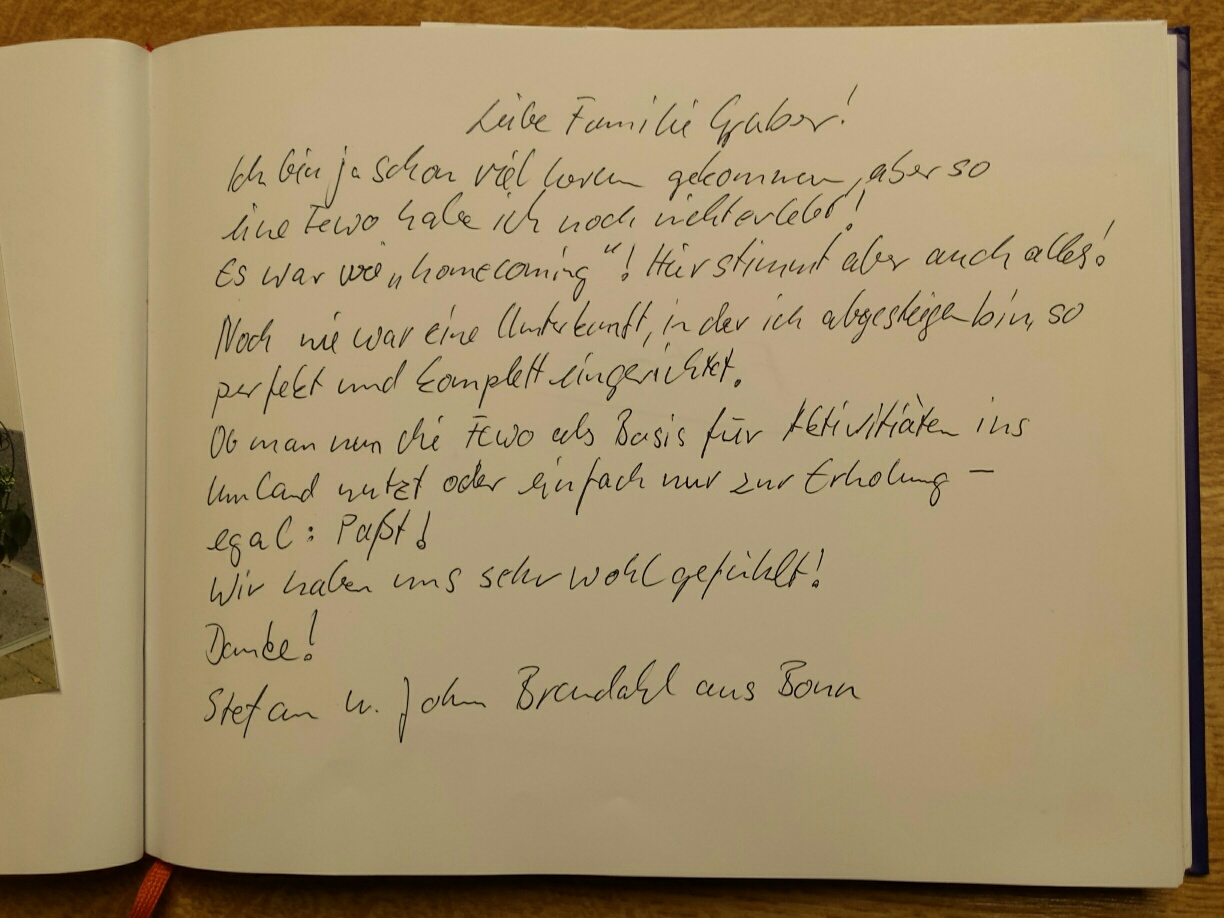 Liebe Familie Graber!
Ich bin ja schon viel herum gekommen, aber so
eine Fewo habe ich noch nicht erlebt!
Es war wie „homecoming“! Hier stimmt aber auch alles!
Noch nie war eine Unterkunft, in der ich abgestiegen bin, so
perfekt und komplett eingerichtet.
Ob man nun die Fewo als Basis für Aktivitäten ins
Umland nutzt oder einfach nur zur Erholung –
egal: Paßt!
Wir haben uns sehr wohl gefühlt!
Danke!
Stefan u. John Brendahl aus Bonn